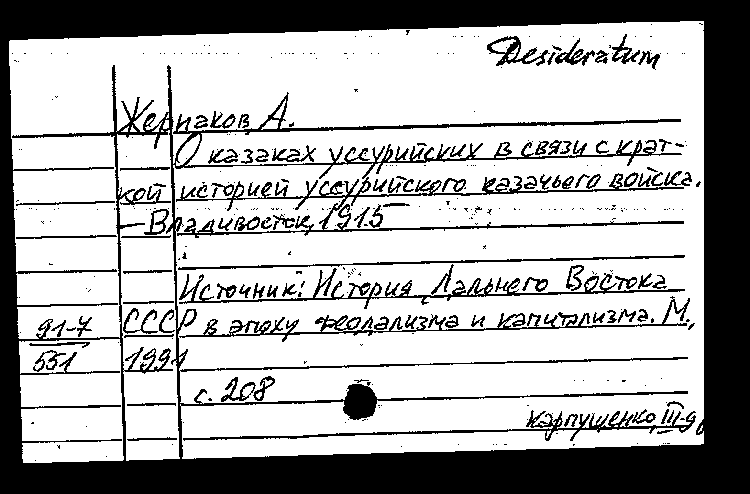 Desideratum
Жернаков, А.
О казаках уссурийских в связи с крат-
кой историей уссурийского казачьего войска.
— Владивосток, 1915
Источник: История Дальнего Востока
91-7 СССР в эпоху феодализма и капитализма. М.,
551 1991
с. 208
Карпущенко, III-9